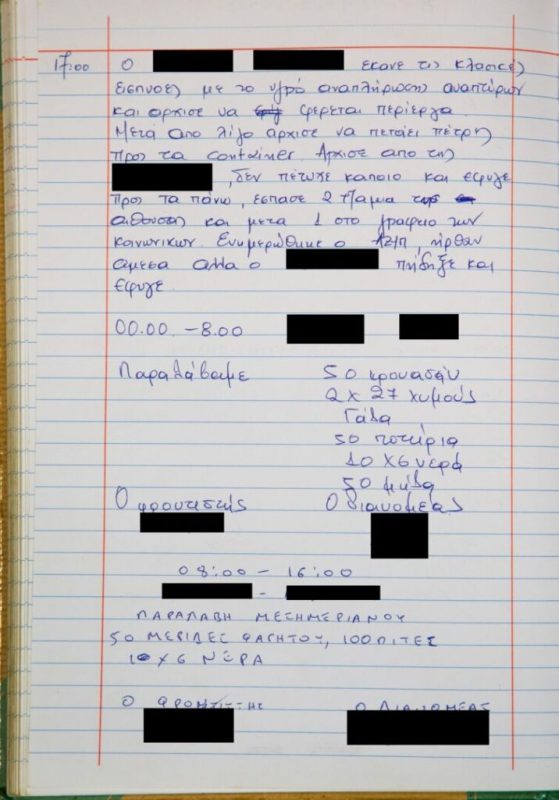 17:00 Ο εκανε τις κλασικές
εισπνοές με το υγρό αναπλήρωσης αναπτύρων
και αρχισε να φερεται περίεργα.
Μετά απο λίγο αρχισε να πεταει πέτρες
προς τα container. Αρχισε απο την
, δεν πέτυχε καποιο και εφυγε
προς τα πάνω, εσπασε 2 τζαμια της
αιθουσας και μετα 1 στο γραφειο των
κοινωνικων. Ενημερώθηκε ο , ηρθαν
αμεσα αλλα ο πήδηξε και
εφυγε.
00.00 - 8.00
Παραλάβαμε 50 κρουασάν
2 x 27 χυμούς
Γάλα
50 ποτήρια
10 x 6 νερά
50 μήλα
Ο φροντιστής Ο διανομέας
08:00 - 16:00
-
ΠΑΡΑΛΑΒΗ ΜΕΣΗΜΕΡΙΑΝΟΥ
50 ΜΕΡΙΔΕΣ ΦΑΓΗΤΟΥ, 100 ΠΙΤΕΣ
10 x 6 ΝΕΡΑ
Ο ΦΡΟΝΤΙΣΤΗΣ Ο ΔΙΑΝΟΜΕΑΣ